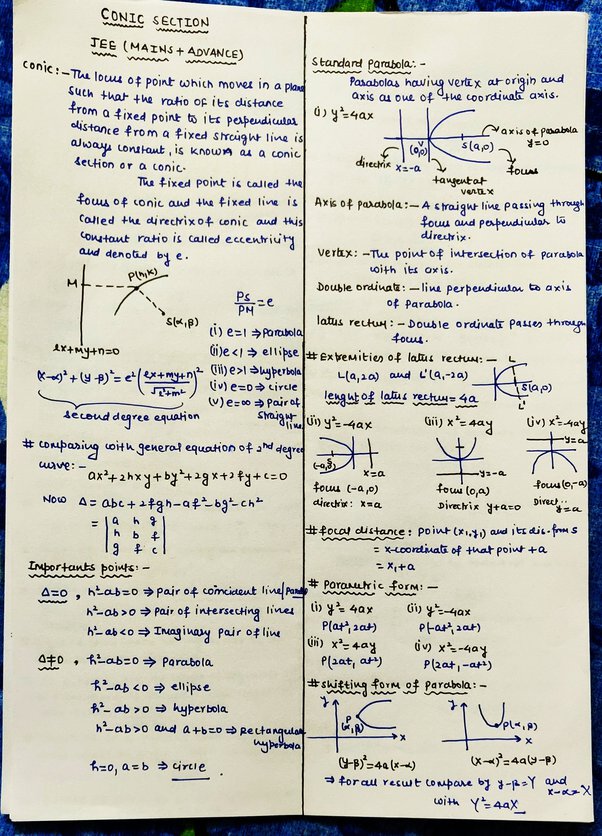 CONIC SECTION
JEE (MAINS + ADVANCE)
Conic:- The locus of point which moves in a plane
such that the ratio of its distance
from a fixed point to its perpendicular
distance from a fixed straight line is
always constant, is known as a conic
section or a conic.
The fixed point is called the
focus of conic and the fixed line is
called the directrix of conic and this
constant ratio is called eccentricity
and denoted by e.
M
P(h,k)
S(α,β)
lx+my+n=0
PS/PM = e
(i) e=1 ⇒ Parabola
(ii) e<1 ⇒ ellipse
(iii) e>1 ⇒ hyperbola
(iv) e=0 ⇒ circle
(v) e=∞ ⇒ Pair of
straight
line
(x-α)²+(y-β)² = e²(lx+my+n/√l²+m²)²
second degree equation
# comparing with general equation of 2nd degree
curve:-
ax²+2hxy+by²+2gx+2fy+c=0
Now Δ = abc+2fgh-af²-bg²-ch²
= |a h g|
|h b f|
|g f c|
Importants points:-
Δ=0, h²-ab=0 ⇒ Pair of coincident line/
h²-ab>0 ⇒ Pair of intersecting lines
h²-ab<0 ⇒ Imaginary pair of line
Δ≠0, h²-ab=0 ⇒ Parabola
h²-ab<0 ⇒ ellipse
h²-ab>0 ⇒ hyperbola
h²-ab>0 and a+b=0 ⇒ Rectangular
hyperbola
h=0, a=b ⇒ circle
Standard Parabola:-
Parabolas having vertex at origin and
axis as one of the coordinate axis.
(i) y²=4ax
V
(0,0)
S(a,0)
axis of parabola
y=0
directrix
x=-a
tangent at
vertex
focus
Axis of parabola:- A straight line passing through
focus and perpendicular to
directrix.
Vertex:- The point of intersection of parabola
with its axis.
Double ordinate:- line perpendicular to axis
of parabola.
latus rectum:- Double ordinate passes through
focus.
# Extremities of latus rectum:-
L(a,2a) and L'(a,-2a)
lenght of latus rectum=4a
L
S(a,0)
L'
(ii) y²=-4ax
S
(-a,0)
x=a
focus (-a,0)
directrix: x=a
(iii) x²=4ay
y=-a
focus(0,a)
Directrix y+a=0
(iv) x²=-4ay
y=a
focus(0,-a)
Direct..
y=a
# focal distance: point (x₁,y₁) and its dis. from S
= x-coordinate of that point +a
= x₁+a
# Parametric form:-
(i) y²=4ax
P(at²,2at)
(ii) y²=-4ax
P(-at²,2at)
(iii) x²=4ay
P(2at,at²)
(iv) x²=-4ay
P(2at,-at²)
# shifting form of Parabola:-
y
P
(α,β)
x
(y-β)²=4a(x-α)
y
P(α,β)
x
(x-α)²=4a(y-β)
⇒ for all result compare by y-β=Y and
x-α=X
with Y²=4aX